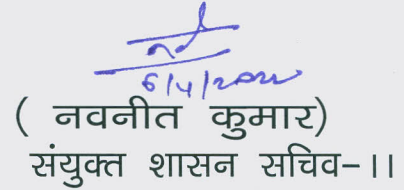 6/4/2022
( नवनीत कुमार)
संयुक्त शासन सचिव-।।